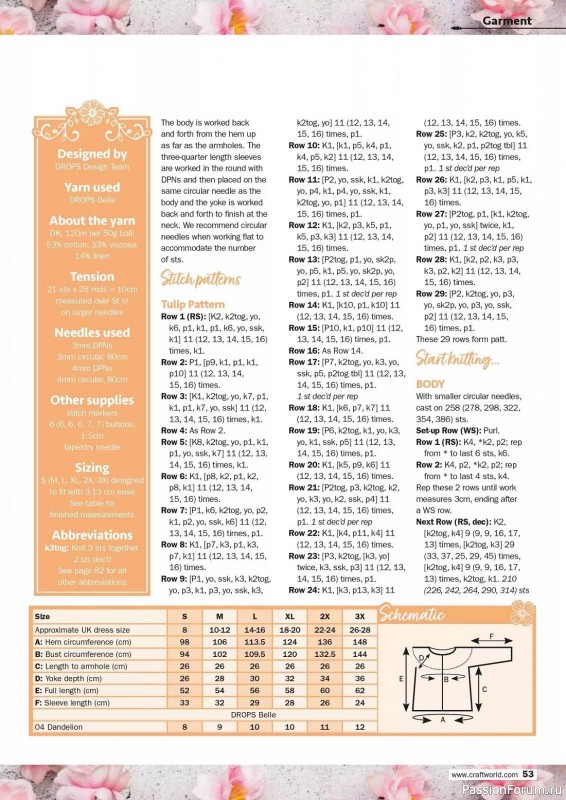 Garment
Designed by
DROPS Design Team
Yarn used
DROPS Belle
About the yarn
DK, 120m per 50g ball;
53% cotton, 33% viscose,
14% linen
Tension
21 sts x 28 rnds = 10cm
measured over St st
on larger needles
Needles used
3mm DPNs
3mm circular, 80cm
4mm DPNs
4mm circular, 80cm
Other supplies
stitch markers
6 (6, 6, 6, 7, 7) buttons,
1.5cm
tapestry needle
Sizing
S (M, L, XL, 2X, 3X) designed
to fit with 3-13 cm ease
See table for
finished measurements
Abbreviations
k3tog: Knit 3 sts together
2 sts dec'd
See page 82 for all
other abbreviations
The body is worked back
and forth from the hem up
as far as the armholes. The
three-quarter length sleeves
are worked in the round with
DPNs and then placed on the
same circular needle as the
body and the yoke is worked
back and forth to finish at the
neck. We recommend circular
needles when working flat to
accommodate the number
of sts.
Stitch patterns
Tulip Pattern
Row 1 (RS): [K2, k2tog, yo,
k6, p1, k1, p1, k6, yo, ssk,
k1] 11 (12, 13, 14, 15, 16)
times, k1.
Row 2: P1, [p9, k1, p1, k1,
p10] 11 (12, 13, 14,
15, 16) times.
Row 3: [K1, k2tog, yo, k7, p1,
k1, p1, k7, yo, ssk] 11 (12,
13, 14, 15, 16) times, k1.
Row 4: As Row 2.
Row 5: [K8, k2tog, yo, p1, k1,
p1, yo, ssk, k7] 11 (12, 13,
14, 15, 16) times, k1.
Row 6: K1, [p8, k2, p1, k2,
p8, k1] 11 (12, 13, 14,
15, 16) times.
Row 7: [P1, k6, k2tog, yo, p2,
k1, p2, yo, ssk, k6] 11 (12,
13, 14, 15, 16) times, p1.
Row 8: K1, [p7, k3, p1, k3,
p7, k1] 11 (12, 13, 14, 15,
16) times.
Row 9: [P1, yo, ssk, k3, k2tog,
yo, p3, k1, p3, yo, ssk, k3,
k2tog, yo] 11 (12, 13, 14,
15, 16) times, p1.
Row 10: K1, [k1, p5, k4, p1,
k4, p5, k2] 11 (12, 13, 14,
15, 16) times.
Row 11: [P2, yo, ssk, k1, k2tog,
yo, p4, k1, p4, yo, ssk, k1,
k2tog, yo, p1] 11 (12, 13, 14,
15, 16) times, p1.
Row 12: K1, [k2, p3, k5, p1,
k5, p3, k3] 11 (12, 13, 14,
15, 16) times.
Row 13: [P2tog, p1, yo, sk2p,
yo, p5, k1, p5, yo, sk2p, yo,
p2] 11 (12, 13, 14, 15, 16)
times, p1. 1 st dec'd per rep
Row 14: K1, [k10, p1, k10] 11
(12, 13, 14, 15, 16) times.
Row 15: [P10, k1, p10] 11 (12,
13, 14, 15, 16) times, p1.
Row 16: As Row 14.
Row 17: [P7, k2tog, yo, k3, yo,
ssk, p5, p2tog tbl] 11 (12, 13,
14, 15, 16) times, p1.
1 st dec'd per rep
Row 18: K1, [k6, p7, k7] 11
(12, 13, 14, 15, 16) times.
Row 19: [P6, k2tog, k1, yo, k3,
yo, k1, ssk, p5] 11 (12, 13,
14, 15, 16) times, p1.
Row 20: K1, [k5, p9, k6] 11
(12, 13, 14, 15, 16) times.
Row 21: [P2tog, p3, k2tog, k2,
yo, k3, yo, k2, ssk, p4] 11
(12, 13, 14, 15, 16)
times, p1. 1 st dec'd per rep
Row 22: K1, [k4, p11, k4] 11
(12, 13, 14, 15, 16) times.
Row 23: [P3, k2tog, [k3, yo]
twice, k3, ssk, p3] 11 (12, 13,
14, 15, 16) times, p1.
Row 24: K1, [k3, p13, k3] 11
(12, 13, 14, 15, 16) times.
Row 25: [P3, k2, k2tog, yo, k5,
yo, ssk, k2, p1, p2tog tbl] 11
(12, 13, 14, 15, 16) times,
p1. 1 st dec'd per rep
Row 26: K1, [k2, p3, k1, p5, k1,
p3, k3] 11 (12, 13, 14, 15,
16) times.
Row 27: [P2tog, p1, [k1, k2tog,
yo, p1, yo, ssk] twice, k1,
p2] 11 (12, 13, 14, 15, 16)
times, p1. 1 st dec'd per rep
Row 28: K1, [k2, p2, k3, p3,
k3, p2, k2] 11 (12, 13, 14,
15, 16) times.
Row 29: [P2, k2tog, yo, p3,
yo, sk2p, yo, p3, yo, ssk,
p2] 11 (12, 13, 14,
15, 16) times, p1.
These 29 rows form patt.
Start knitting...
BODY
With smaller circular needles,
cast on 258 (278, 298, 322,
354, 386) sts.
Set-up Row (WS): Purl.
Row 1 (RS): K4, *k2, p2; rep
from * to last 6 sts, k6.
Row 2: K4, p2, *k2, p2; rep
from * to last 4 sts, k4.
Rep these 2 rows until work
measures 3cm, ending after
a WS row.
Next Row (RS, dec): K2,
[k2tog, k4] 9 (9, 9, 16, 17,
13) times, [k2tog, k3] 29
(33, 37, 25, 29, 45) times,
[k2tog, k4] 9 (9, 9, 16, 17,
13) times, k2tog, k1. 210
(226, 242, 264, 290, 314) sts
Size S M L XL 2X 3X
Approximate UK dress size 8 10-12 14-16 18-20 22-24 26-28
A: Hem circumference (cm) 98 106 113.5 124 136 148
B: Bust circumference (cm) 94 102 109.5 120 132.5 144
C: Length to armhole (cm) 26 26 26 26 26 26
D: Yoke depth (cm) 26 28 30 32 34 36
E: Full length (cm) 52 54 56 58 60 62
F: Sleeve length (cm) 33 32 29 28 26 24
DROPS Belle
04 Dandelion 8 9 10 10 11 12
Schematic
F
D
E
B
C
A
www.craftworld.com 53
PassionForum.ru